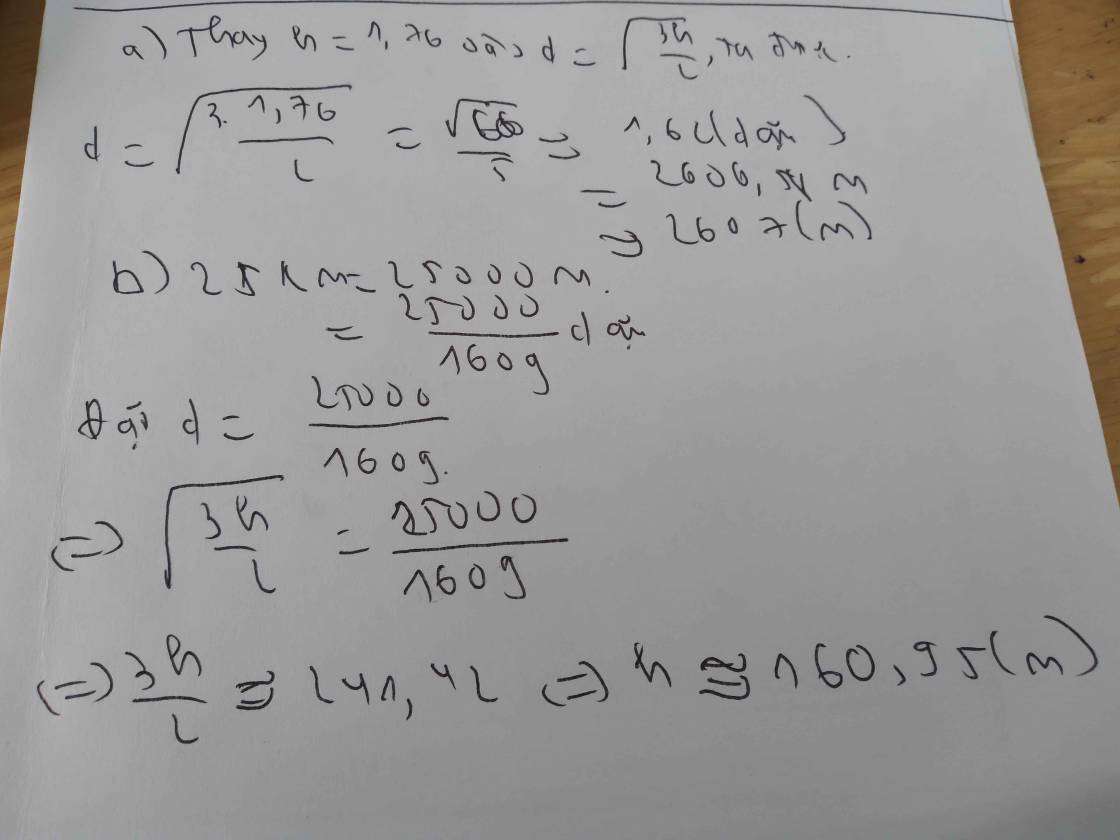 a) Thay h = 1,76 vào d = √(3h/2), ta được.
d = √(3.1,76/2) = √66/5 ≈ 1,62 (dặm)
= 2606,54 m
≈ 2607 (m)
b) 25 km = 25000 m.
= 25000/1609 dặm
Đặt d = 25000/1609.
<=> √(3h/2) = 25000/1609
<=> 3h/2 ≈ 241,42 <=> h ≈ 160,95 (m)